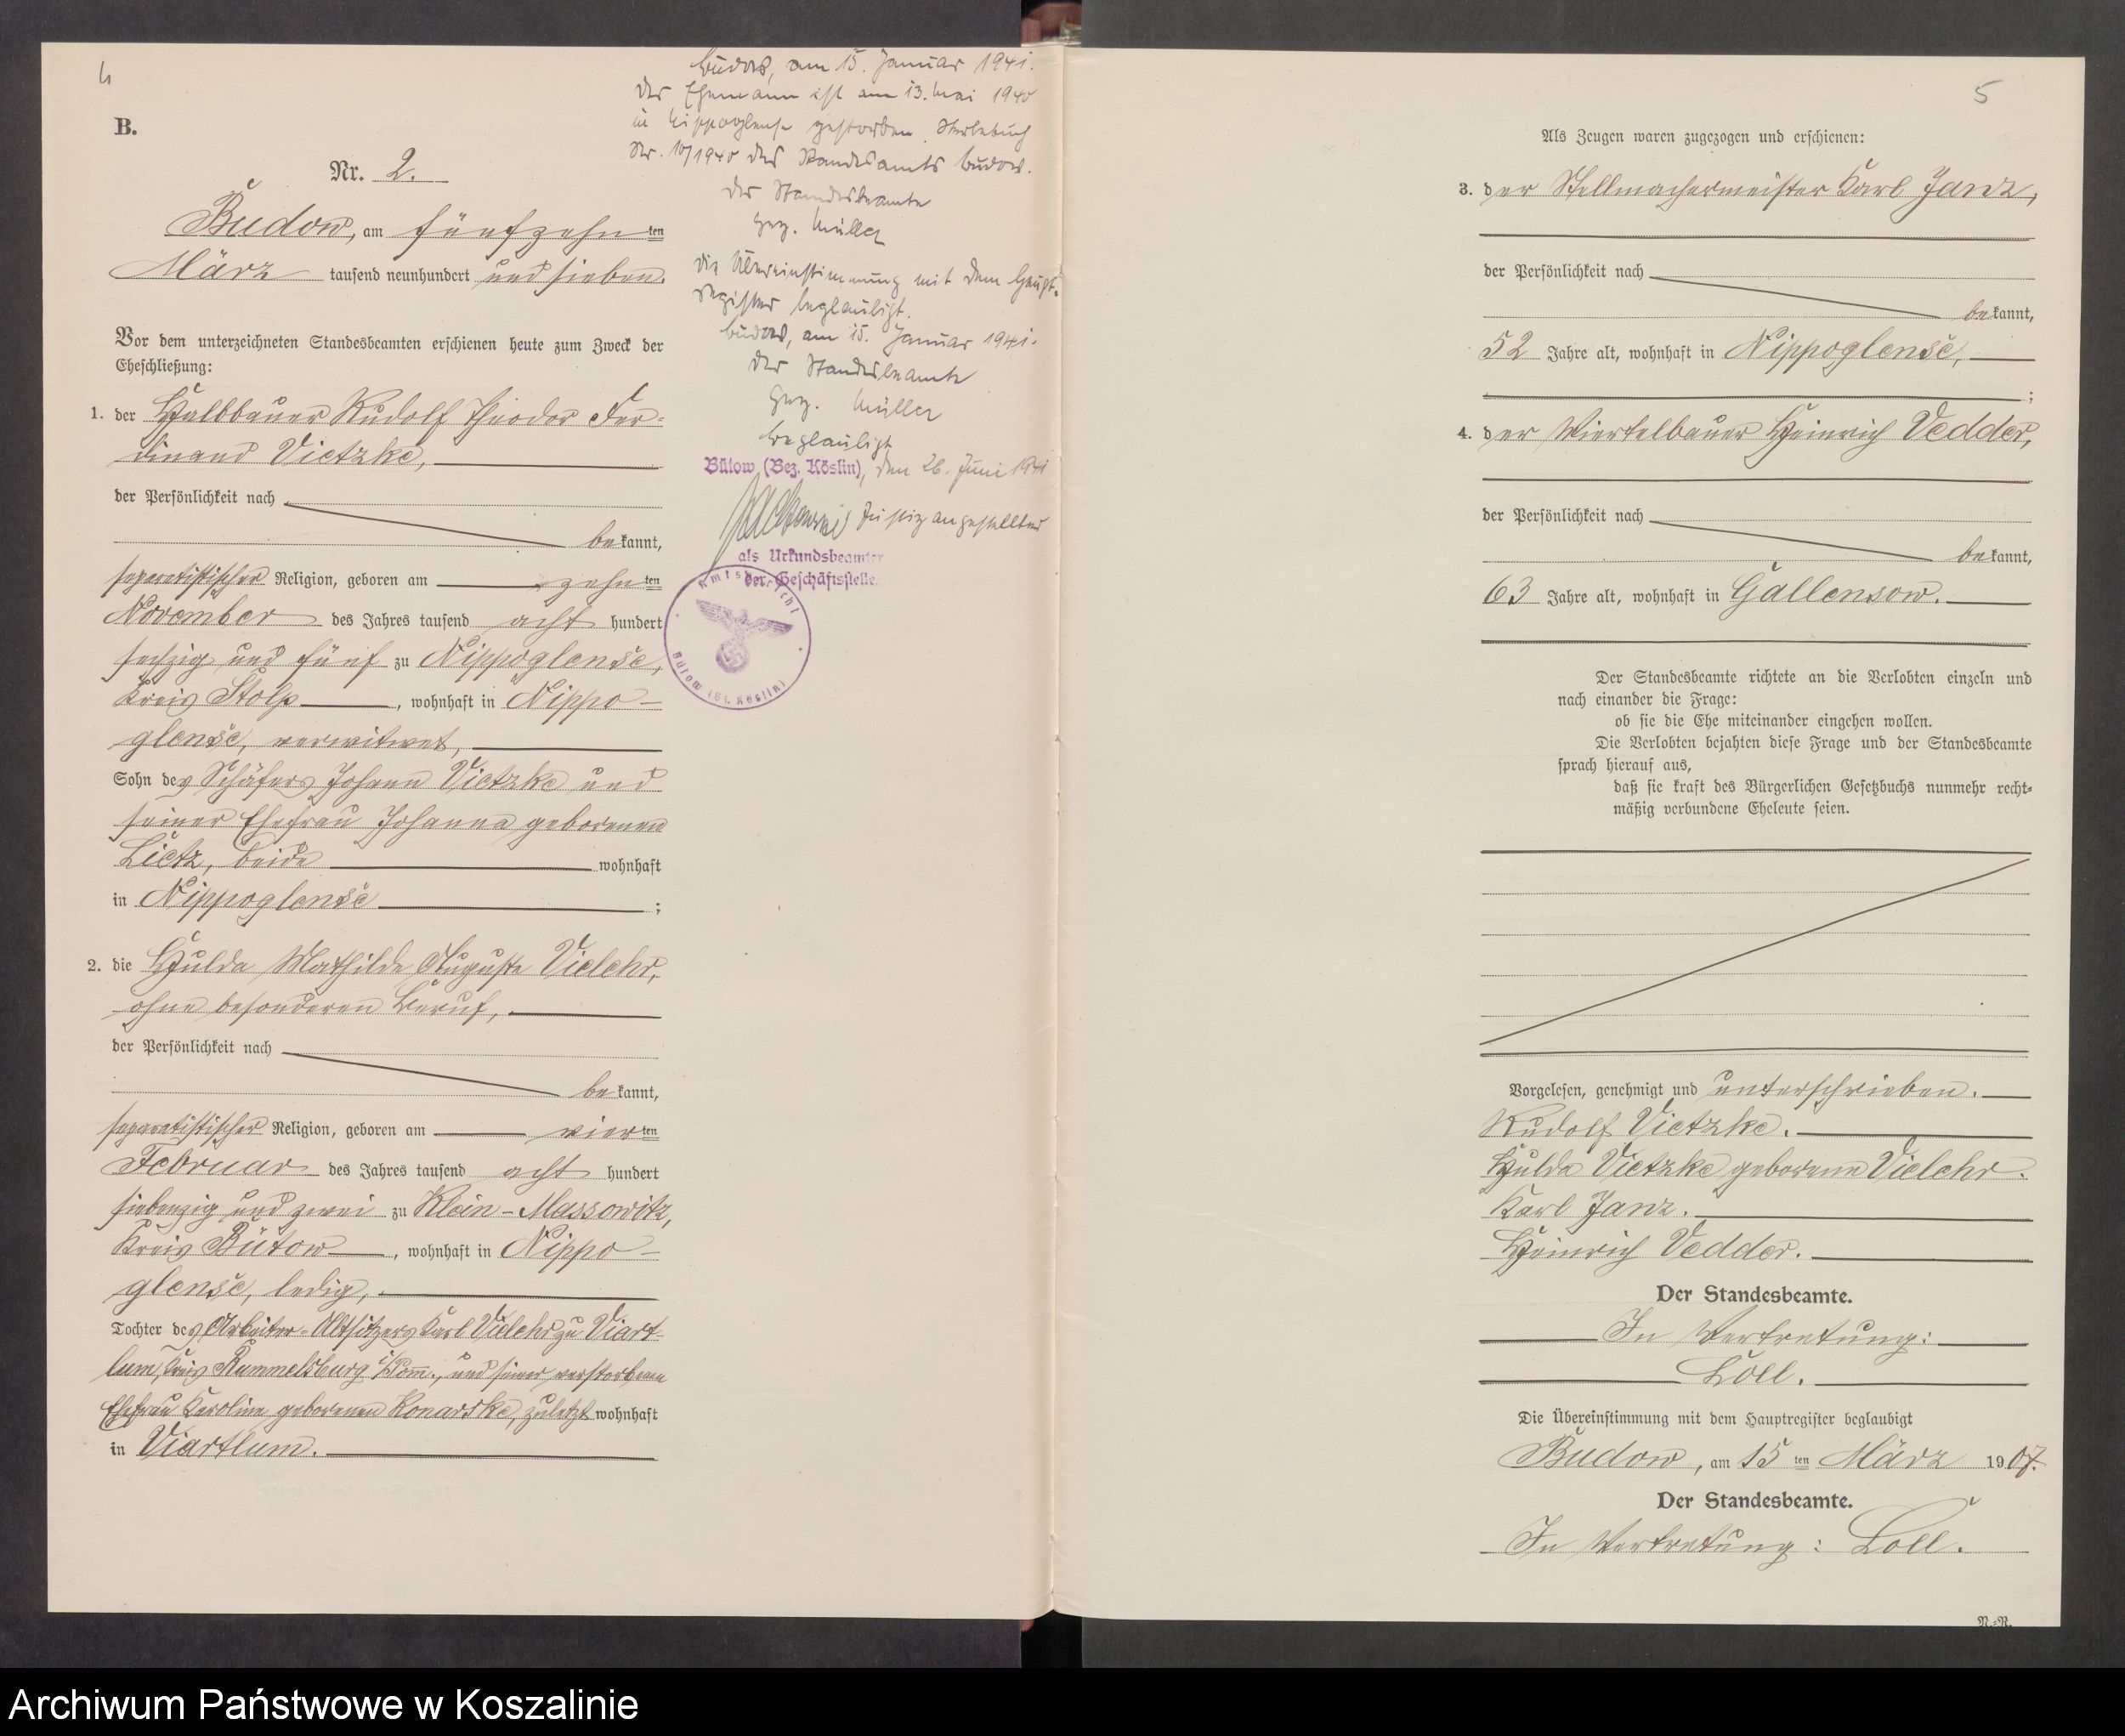 4
B.
Nr. 2.
Budow, am fünfzehnten
März tausend neunhundert und sieben.
Vor dem unterzeichneten Standesbeamten erschienen heute zum Zweck der
Eheschließung:
1. der Halbbauer Rudolf Theodor Fer-
dinand Vietzke,
der Persönlichkeit nach
bekannt,
separatistischer Religion, geboren am zehnten
November des Jahres tausend acht hundert
sechzig und fünf zu Nippoglense,
Kreis Stolp, wohnhaft in Nippo-
glense, verwitwet,
Sohn des Schäfers Johann Vietzke und
seiner Ehefrau Johanna geborenen
Lietz, beide wohnhaft
in Nippoglense;
2. die Hulda Mathilde Auguste Vielehr,
ohne besonderen Beruf,
der Persönlichkeit nach
bekannt,
separatistischer Religion, geboren am vierten
Februar des Jahres tausend acht hundert
siebenzig und zwei zu Klein-Massowitz,
Kreis Bütow, wohnhaft in Nippo-
glense, ledig,
Tochter des Arbeiter-Altsitzers Karl Vielehr zu Viart-
lum, Kreis Rummelsburg i/Pom., und seiner verstorbenen
Ehefrau Karoline geborenen Konarske, zuletzt wohnhaft
in Viartlum.
Budow, am 15. Januar 1941.
Der Ehemann ist am 13. Mai 1940
in Nippoglense gestorben. Sterbebuch
Nr. 10/1940 des Standesamts Budow.
Der Standesbeamte
gez. Müller
Die Übereinstimmung mit dem Haupt-
register beglaubigt.
Budow, am 15. Januar 1941.
Der Standesbeamte
gez. Müller
Beglaubigt
Bütow (Bez. Köslin), den 26. Juni 1941
Justizangestellter
als Urkundsbeamter
der Geschäftsstelle.
Amtsgericht
Bütow (Bz. Köslin)
5
Als Zeugen waren zugezogen und erschienen:
3. der Stellmachermeister Karl Janz,
der Persönlichkeit nach
bekannt,
52 Jahre alt, wohnhaft in Nippoglense,
;
4. der Viertelbauer Heinrich Vedder,
der Persönlichkeit nach
bekannt,
63 Jahre alt, wohnhaft in Gallensow.
Der Standesbeamte richtete an die Verlobten einzeln und
nach einander die Frage:
ob sie die Ehe miteinander eingehen wollen.
Die Verlobten bejahten diese Frage und der Standesbeamte
sprach hierauf aus,
daß sie kraft des Bürgerlichen Gesetzbuchs nunmehr recht-
mäßig verbundene Eheleute seien.
Vorgelesen, genehmigt und unterschrieben.
Rudolf Vietzke.
Hulda Vietzke geborene Vielehr.
Karl Janz.
Heinrich Vedder.
Der Standesbeamte.
In Vertretung:
Loll.
Die Übereinstimmung mit dem Hauptregister beglaubigt
Budow, am 15ten März 1907.
Der Standesbeamte.
In Vertretung: Loll.
N.-N.
Archiwum Państwowe w Koszalinie